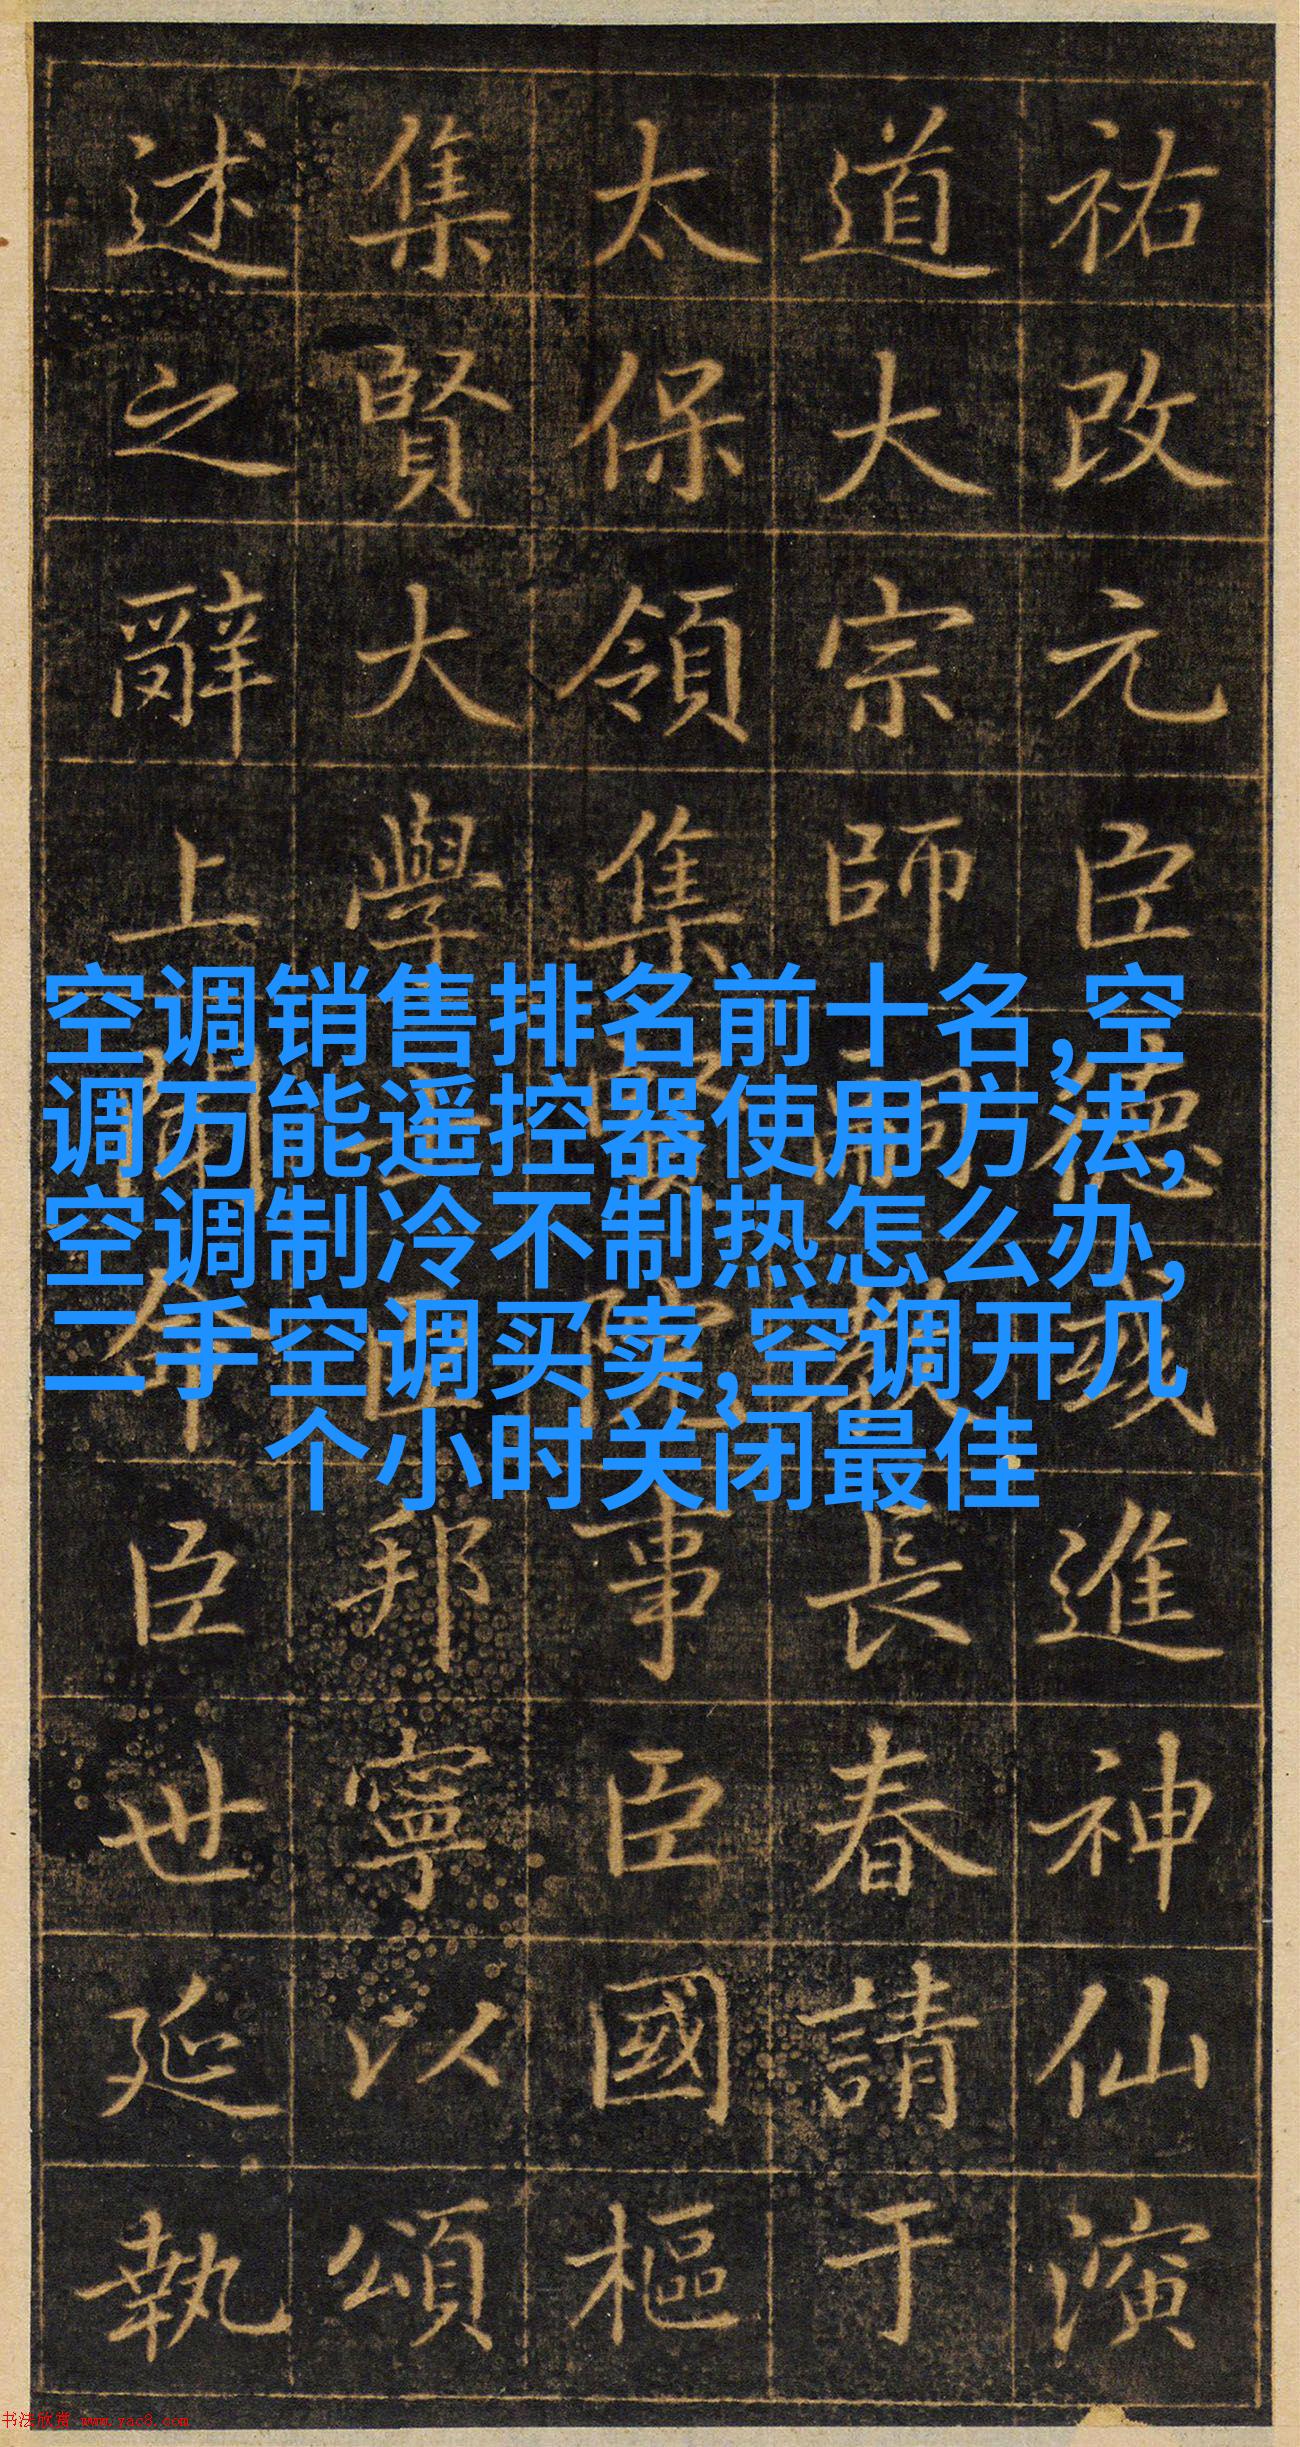 祐改元臣德進神仙演
道大宗師嗣教長春請于
太保領集賢院事臣國樞
集賢大學士臣邦寧以頌
述之辭上聞臣世延執
空调销售排名前十名,空
调万能遥控器使用方法,
空调制冷不制热怎么办,
二手空调买卖,空调开几
个小时关闭最佳
书法欣赏 www.yac8.com